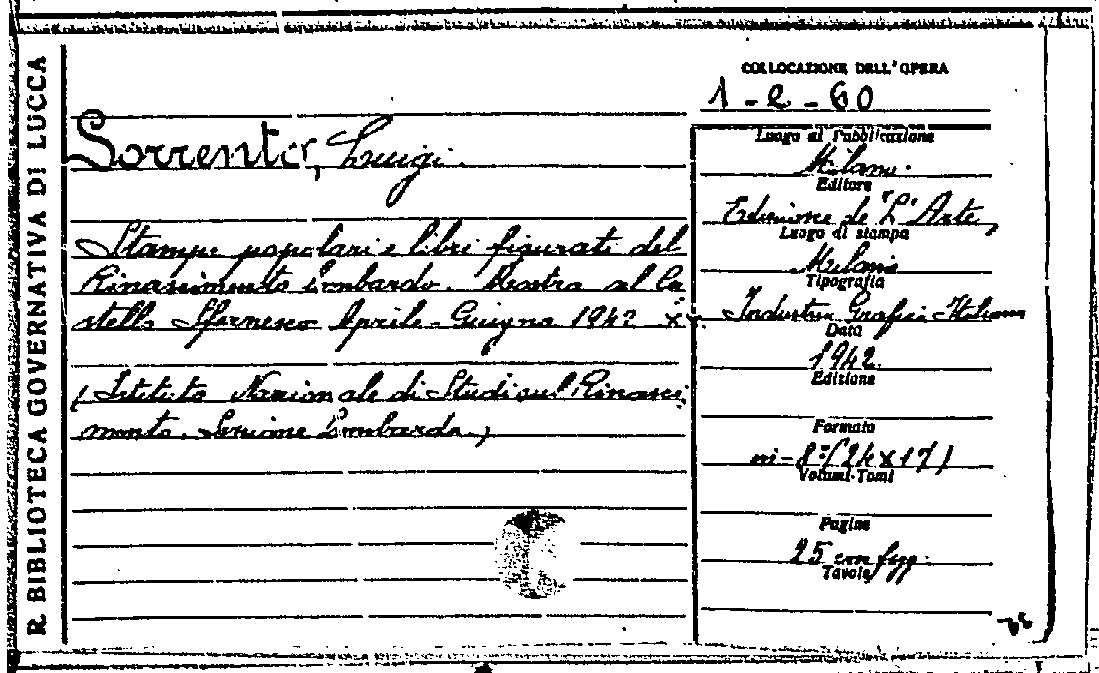 R. BIBLIOTECA GOVERNATIVA DI LUCCA
COLLOCAZIONE DELL'OPERA
1-2-60
Sorrento, Luigi.
Stampe popolari e libri figurati del
Rinascimento Lombardo. Mostra al Ca
stello Sforzesco Aprile-Giugno 1942 XX
(Istituto Nazionale di Studi sul Rinasci
mento. Sezione Lombarda.)
Luogo di Pubblicazione
Milano.
Editore
Edizione de "L'Arte,
Luogo di stampa
Milano
Tipografia
Industrie Grafiche Italiane
Data
1942.
Edizione
Formato
in-8° (24x17)
Volumi-Tomi
Pagine
25 con figg.
Tavole